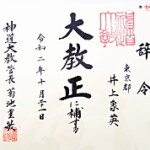 辞令
東京都
井上象英
大教正
に補する
令和二年十月二十一日
神道大教管長 菊池重敏